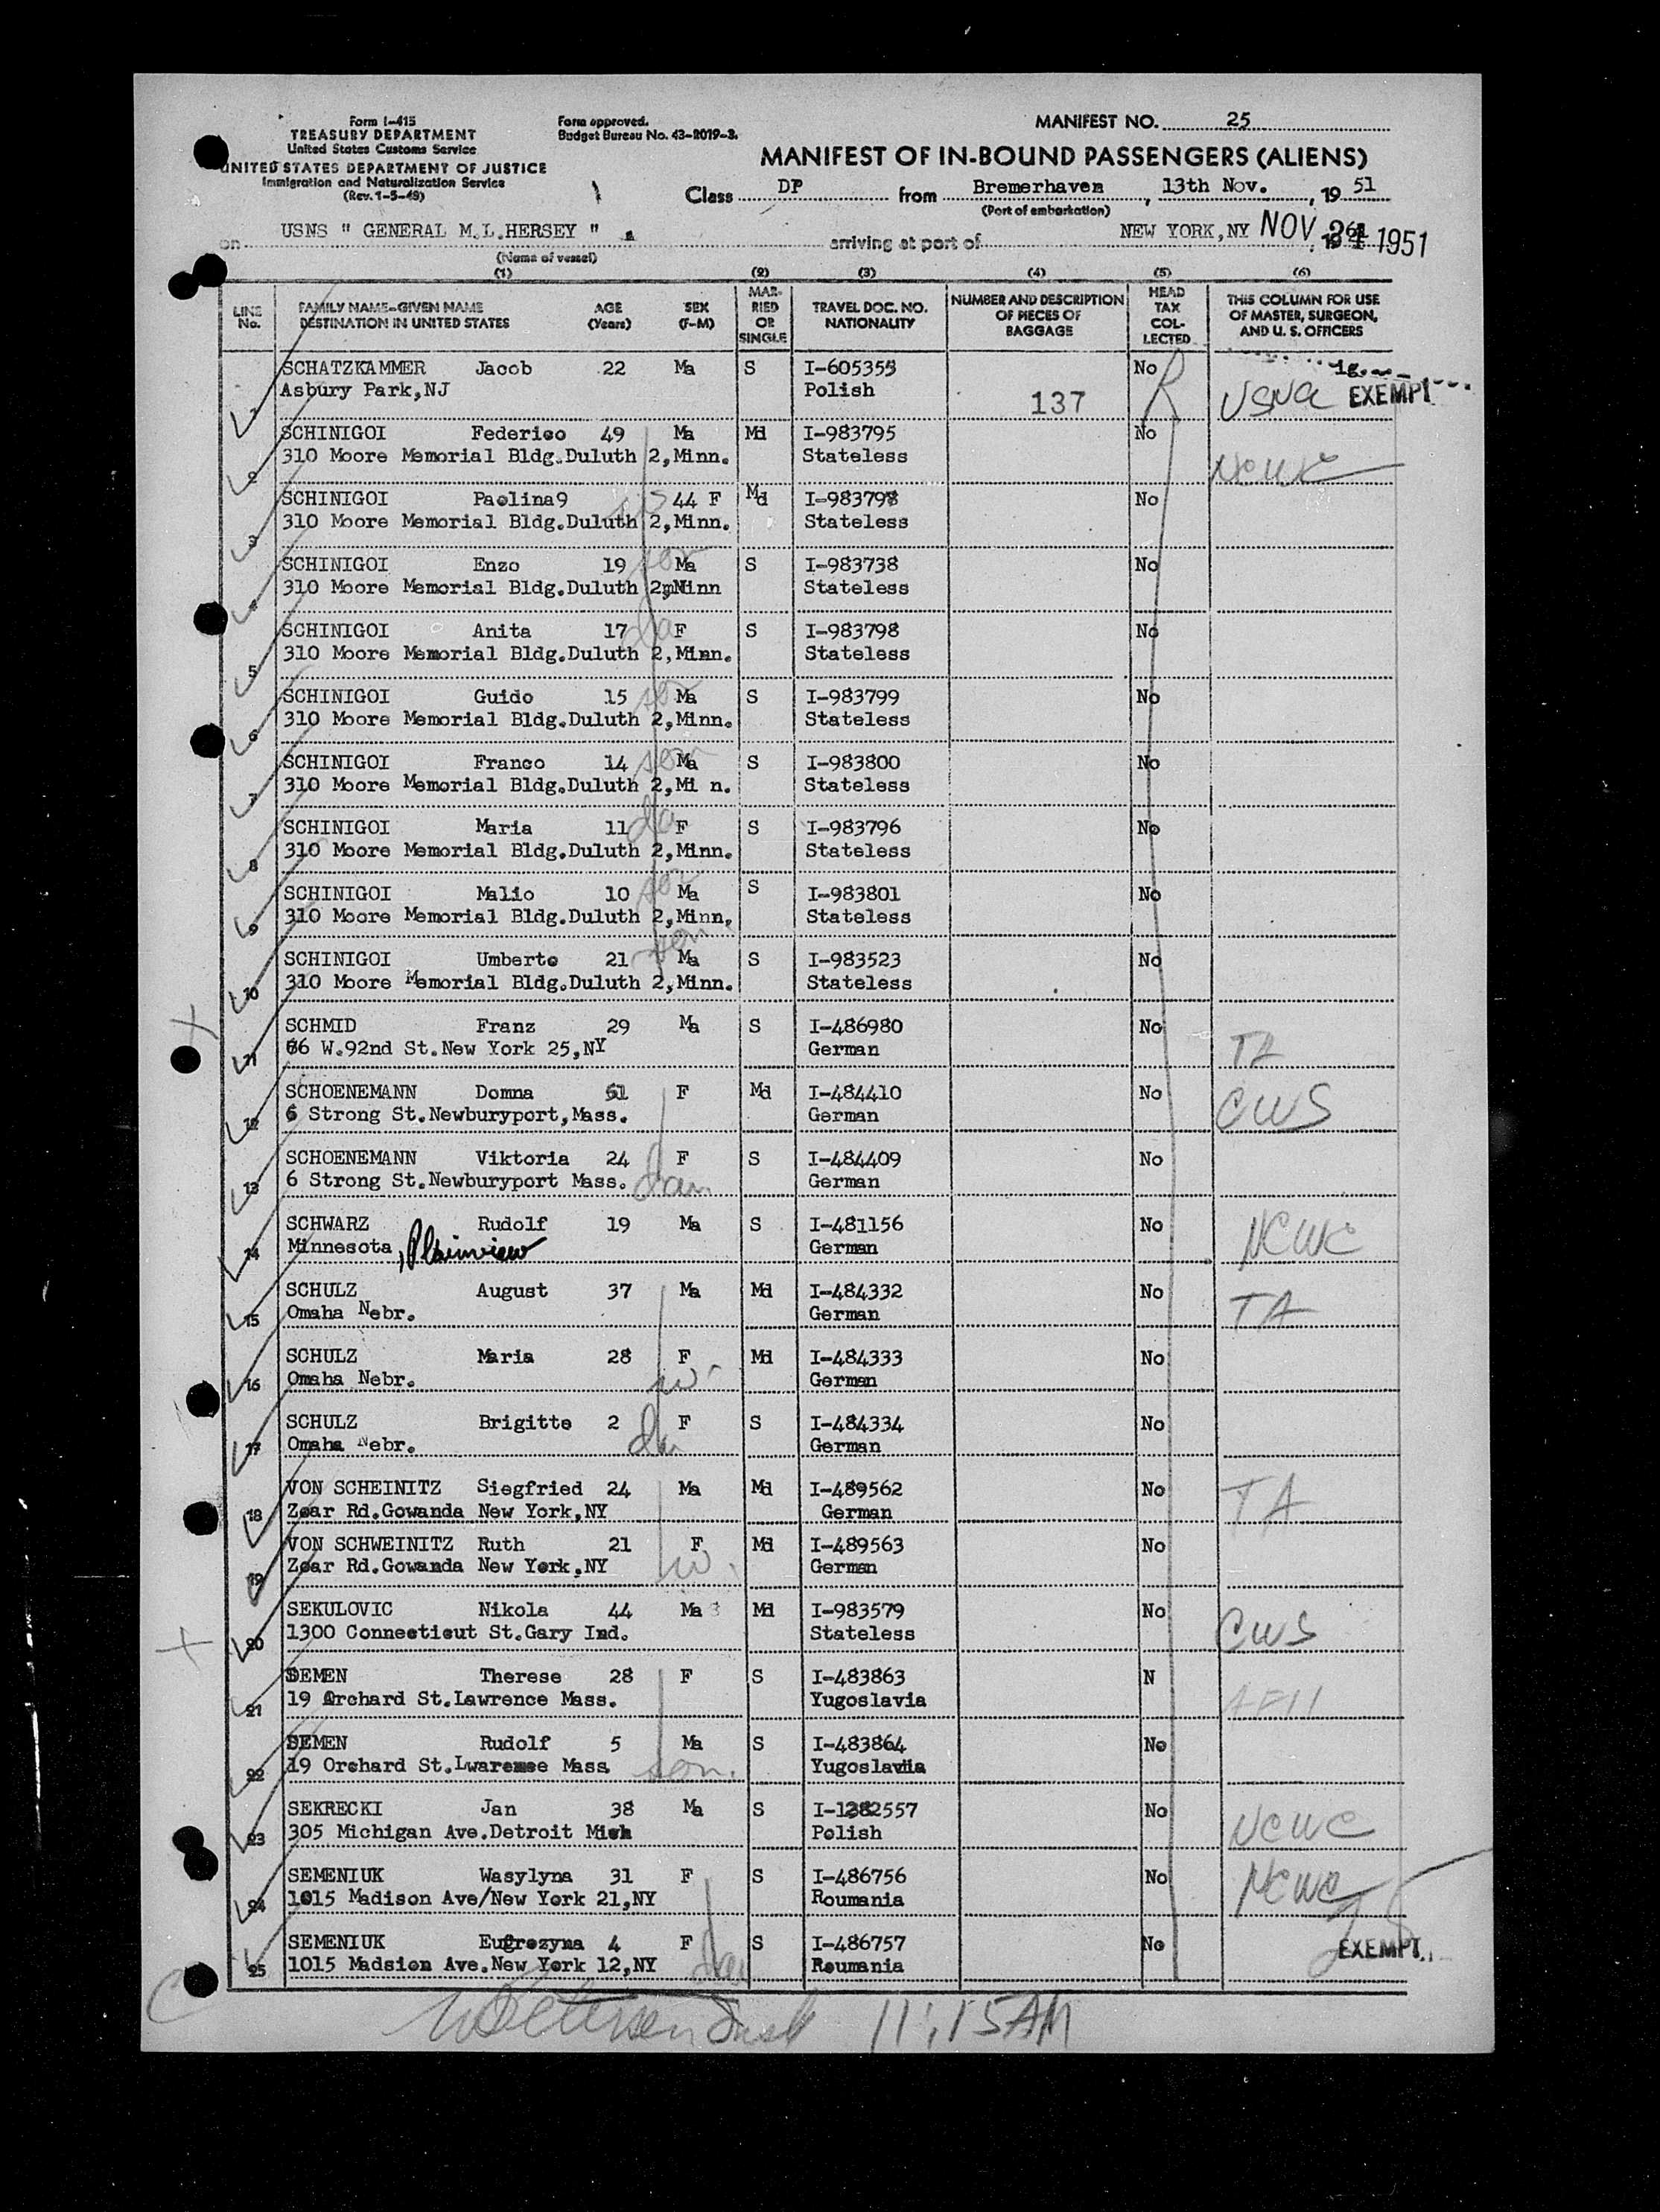 Form I-415
TREASURY DEPARTMENT
United States Customs Service
UNITED STATES DEPARTMENT OF JUSTICE
Immigration and Naturalization Service
(Rev. 1-5-49)
Form approved.
Budget Bureau No. 43-R019-3.
MANIFEST NO. 25
MANIFEST OF IN-BOUND PASSENGERS (ALIENS)
Class DP from Bremerhaven, 13th Nov., 19 51
(Port of embarkation)
on USNS " GENERAL M.L.HERSEY " arriving at port of NEW YORK, NY NOV 24 1951
(Name of vessel)
(1) (2) (3) (4) (5) (6)
LINE No. FAMILY NAME—GIVEN NAME DESTINATION IN UNITED STATES AGE (Years) SEX (F-M) MARRIED OR SINGLE TRAVEL DOC. NO. NATIONALITY NUMBER AND DESCRIPTION OF PIECES OF BAGGAGE HEAD TAX COLLECTED THIS COLUMN FOR USE OF MASTER, SURGEON, AND U. S. OFFICERS
1 SCHATZKAMMER Jacob 22 Ma S I-605355 No
Asbury Park,NJ Polish 137 USNA EXEMPT
2 SCHINIGOI Federico 49 Ma Md I-983795 No
310 Moore Memorial Bldg.Duluth 2,Minn. Stateless NCWC
3 SCHINIGOI Paolina9 44 F Md I-983798 No
310 Moore Memorial Bldg.Duluth 2,Minn. Stateless
4 SCHINIGOI Enzo 19 son Ma S I-983738 No
310 Moore Memorial Bldg.Duluth 2,Minn Stateless
5 SCHINIGOI Anita 17 da F S I-983798 No
310 Moore Memorial Bldg.Duluth 2,Minn. Stateless
6 SCHINIGOI Guido 15 son Ma S I-983799 No
310 Moore Memorial Bldg.Duluth 2,Minn. Stateless
7 SCHINIGOI Franco 14 son Ma S I-983800 No
310 Moore Memorial Bldg.Duluth 2,Mi n. Stateless
8 SCHINIGOI Maria 11 da F S I-983796 No
310 Moore Memorial Bldg.Duluth 2,Minn. Stateless
9 SCHINIGOI Malio 10 son Ma S I-983801 No
310 Moore Memorial Bldg.Duluth 2,Minn, Stateless
10 SCHINIGOI Umberto 21 son Ma S I-983523 No
310 Moore Memorial Bldg.Duluth 2,Minn. Stateless
11 SCHMID Franz 29 Ma S I-486980 No
66 W.92nd St.New York 25,NY German TA
12 SCHOENEMANN Domna 61 F Md I-484410 No
6 Strong St.Newburyport,Mass. German CWS
13 SCHOENEMANN Viktoria 24 F S I-484409 No
6 Strong St.Newburyport Mass. dau German
14 SCHWARZ Rudolf 19 Ma S I-481156 No
Minnesota, Plainview German NCWC
15 SCHULZ August 37 Ma Md I-484332 No
Omaha Nebr. German TA
16 SCHULZ Maria 28 F Md I-484333 No
Omaha Nebr. w German
17 SCHULZ Brigitte 2 F S I-484334 No
Omaha Nebr. da German
18 VON SCHEINITZ Siegfried 24 Ma Md I-489562 No
Zoar Rd.Gowanda New York,NY German TA
19 VON SCHWEINITZ Ruth 21 F Md I-489563 No
Zoar Rd.Gowanda New York,NY w. German
20 SEKULOVIC Nikola 44 Ma Md I-983579 No
1300 Connecticut St.Gary Ind. Stateless CWS
21 SEMEN Therese 28 F S I-483863 N
19 Orchard St.Lawrence Mass. Yugoslavia
22 SEMEN Rudolf 5 Ma S I-483864 No
19 Orchard St.Lwarence Mass son. Yugoslavia
23 SEKRECKI Jan 38 Ma S I-1282557 No
305 Michigan Ave.Detroit Mich Polish NCWC
24 SEMENIUK Wasylyna 31 F S I-486756 No
1015 Madison Ave/New York 21,NY Roumania NCWC
25 SEMENIUK Eufrozyna 4 F S I-486757 No
1015 Madsion Ave.New York 12,NY dau Roumania EXEMPT
11:15 AM